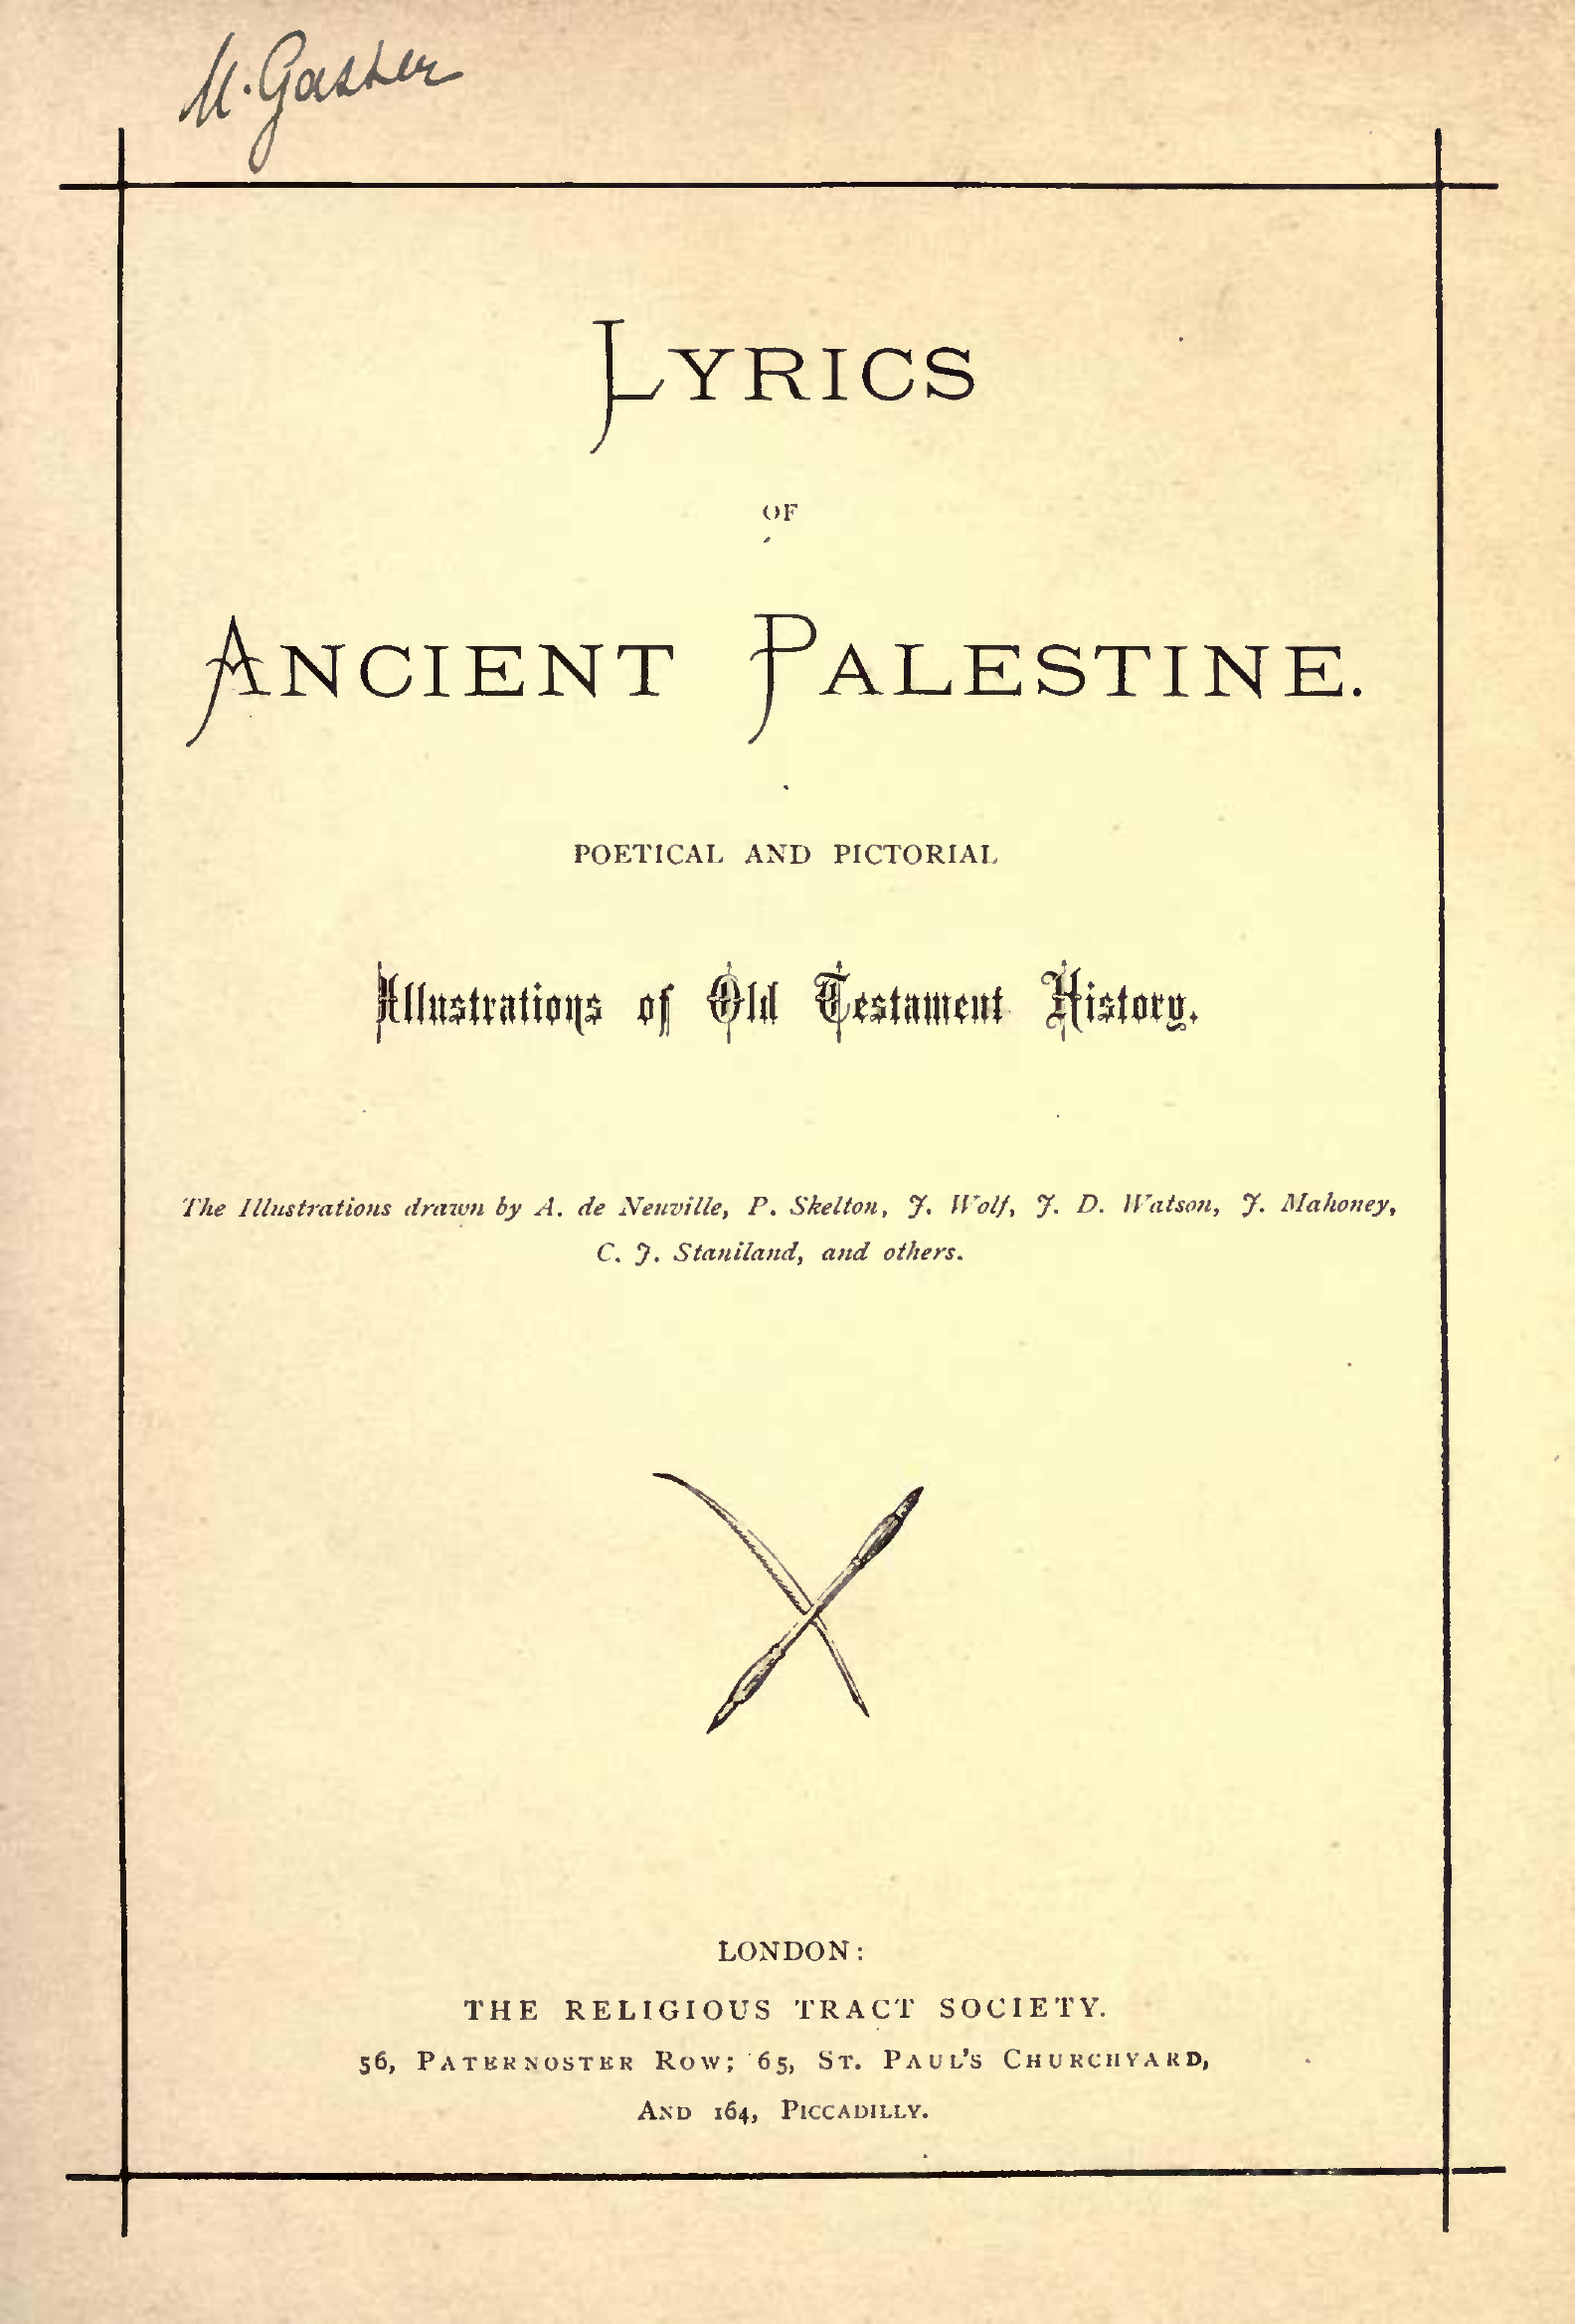 M. Gaster
LYRICS
OF
ANCIENT PALESTINE.
POETICAL AND PICTORIAL
Illustrations of Old Testament History.
The Illustrations drawn by A. de Neuville, P. Skelton, J. Wolf, J. D. Watson, J. Mahoney,
C. J. Staniland, and others.
LONDON:
THE RELIGIOUS TRACT SOCIETY.
56, PATERNOSTER ROW; 65, ST. PAUL'S CHURCHYARD,
AND 164, PICCADILLY.